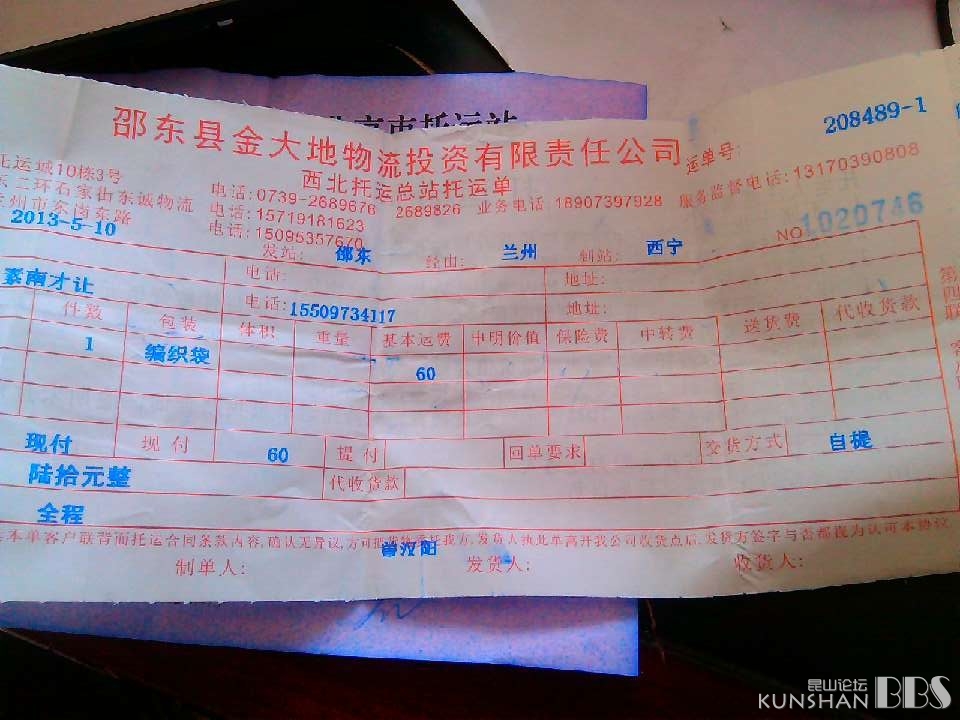 邵东县金大地物流投资有限责任公司
208489-1
运单号:
西北托运总站托运单
托运城10栋3号
电话:0739-2689676 2689826 业务电话:18907397928 服务监督电话:13170390808
东二环石家街东诚物流 电话:15719181623
兰州市东岗东路 电话:15095357670
NO 1020746
2013-5-10 发站: 邵东 经由: 兰州 到站: 西宁
电话: 地址:
南才让 电话:15509734117 地址:
件数 包装 体积 重量 基本运费 申明价值 保险费 中转费 送货费 代收货款
1 编织袋 60
现付 现付 60 提付 回单要求 交货方式 自提
陆拾元整 代收货款
全程
本单客户联背面托运合同条款内容,确认无异议,方可把货物委托我方,发货人执此单离开我公司收货点后,发货方签字与否都视为认可本协议
制单人: 曾汉阳 发货人: 收货人:
第四联
昆山论坛
KUNSHAN BBS